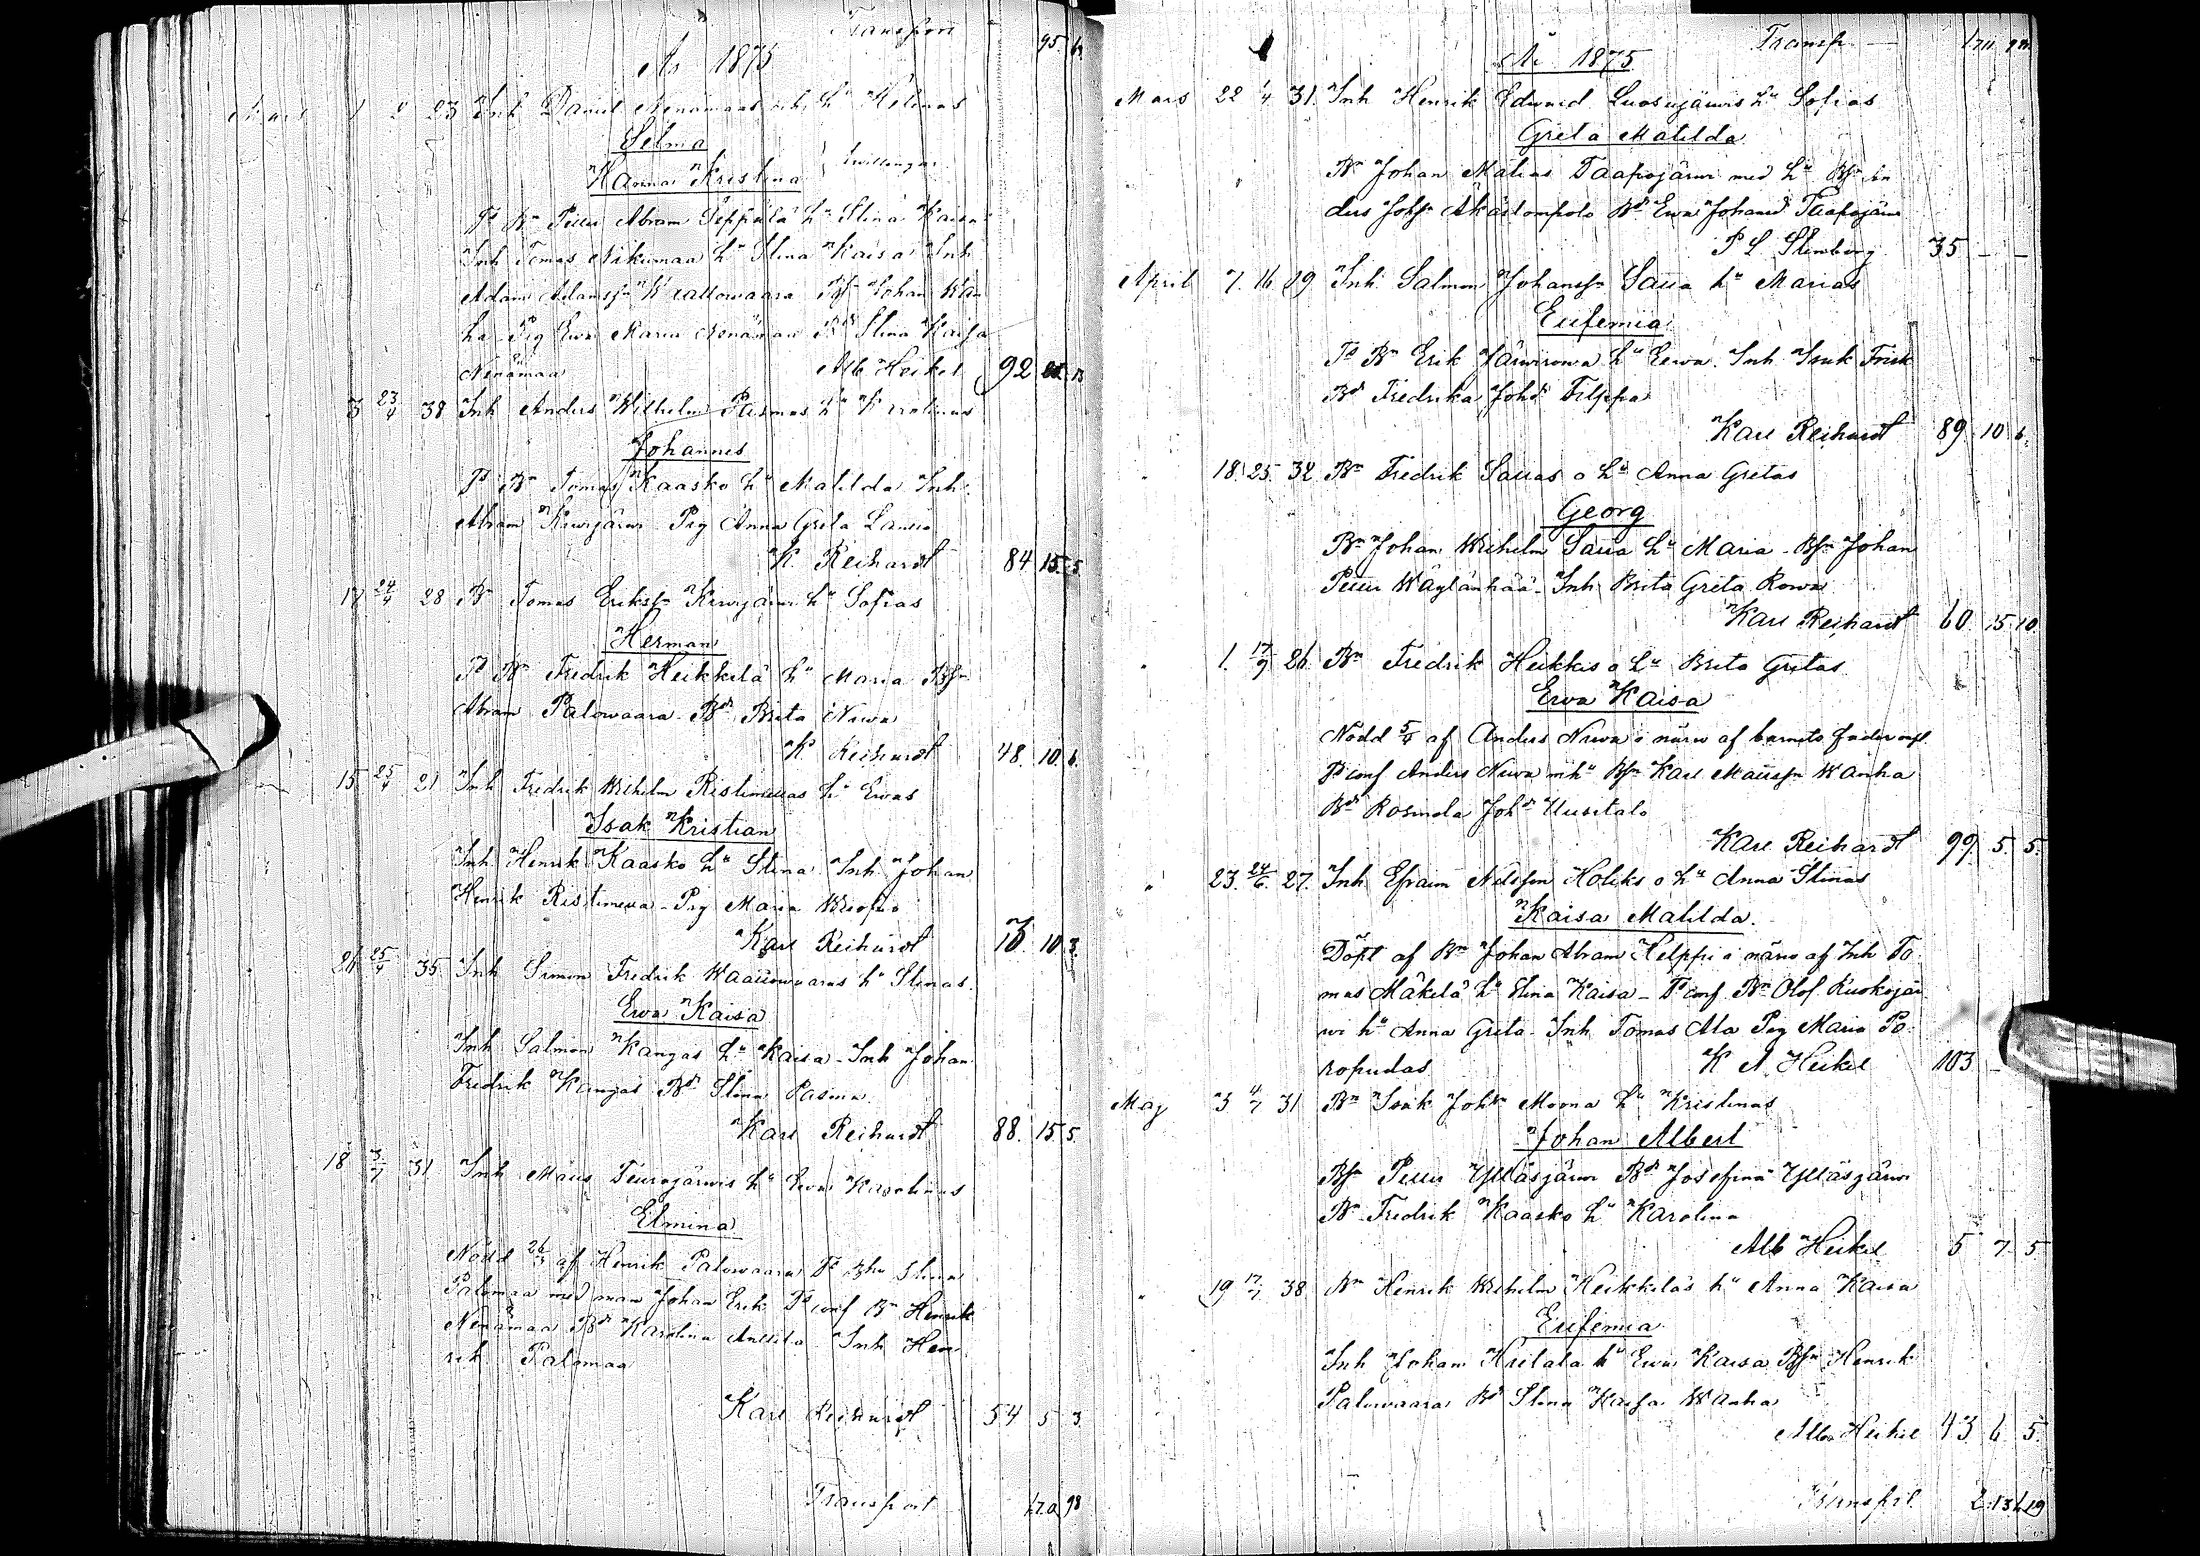 Transport 95
År 1875
Mars 1 2 23 Inh Daniel Nenämaas och h. Helenas
Selma
Hanna Kristina } tvillingar
Bn Petter Abram Seppälä h. Stina Kaisa
Inh Tomas Näkumaa h. Stina Kaisa Inh
Adam Adamssn Krattowaara Johan Wan
ha Pig Ewa Maria Nenämaa Stina Kaisa
Nenämaa Alb Heikel 92
3 23/4 38 Inh Anders Wilhelm Pasmas h. Karolinas
Johannes
Bn Tomas Kaasko h. Matilda Inh
Abram Kurujärwi Pig Anna Greta Lauri
K. Reihardt 84 15 5
17 24/4 28 Bn Tomas Erikssn h. Sofias
Herman
Bn Fredrik Heikkilä h. Maria Bsn
Abram Palowaara Bdr Brita Niwa
K Reihardt 48. 10. 6.
15 25/4 21 Inh Fredrik Wilhelm Ristimellas h. Ewas
Isak Kristian
Inh Henrik Kaasko h. Stina Inh Johan
Henrik Ristimella Pig Maria
Karl Reihardt 10 3
26 25/4 35 Inh Simon Fredrik h. Stinas.
Ewa Kaisa
Inh Salmon Kangas h. Kaisa - Inh Johan
Fredrik Kangas Bdr Stina Pasma.
Karl Reihardt 88. 15 5
18 3/7 31 Inh Mats Teurajärwis h. Ewa Karolinas
Elmina
Nödd 26/3 af Henrik Palowaara Stina
Palomaa med man Johan Erik conf Bn Henrik
Nenämaa Bdr Karolina Anttila Inh Hen
rik Palomaa
Karl Reihardt 54 5 3
Transport
Transp.
År 1875
Mars 22 1/4 31. Inh Henrik Edward Luosujärwis h. Sofias
Greta Matilda
Bn Johan Matias Taapojärwi med h. Bsn An
ders Johsn Äkäslompolo Bdr Ewa Johansd Taapojärwi
P L Stenberg 35 - -
April 7. 16 29 Inh Salmon Johanssn Saua h. Marias
Eufemia
Bn Erik Järwirowa h. Eewa. Inh Isak Frisk
Bdr Fredrika Johdr Filppa
Karl Reihardt 89 10 6.
18. 25. 32 Bn Fredrik Sauas o h. Anna Gretas
Georg
Bn Johan Wilhelm Saua h. Maria - Bsn Johan
Petter Wäylänpää - Inh Brita Greta Rowa
Karl Reihardt 60 15 10
1. 17/9 26 Bn Fredrik Heikkis o h. Brita Gretas
Ewa Kaisa
Nödd 5/4 af Anders Niwa i närw af barnets fader
conf Anders Niwa m h. Bsn Karl Matssn Wanha
Bdr Rosinda Johdr Uusitalo
Karl Reihardt 99 5. 5.
23. 24/6. 27. Inh Efraim Nilssn Holiks o h. Anna Stinas
Kaisa Matilda.
Döpt af Bn Johan Abram Helppi i närw af Inh To
mas Mäkelä h. Stina Kaisa - conf. Bn Olof Ruokojär
wi h. Anna Greta - Inh Tomas Ala Pig Maria Po
ropudas K A Heikel 103 -
Maj 3 4/7 31 Bn Isak Johssn Moona h. Kristinas
Johan Albert
Bsn Petter Ylläsjärwi Bdr Josefina Ylläsjärwi
Bn Fredrik Kaasko h. Karolina
Alb Heikel 5 7. 5
19 17/7 38 Bn Henrik Wilhelm Heikkiläs h. Anna Kaisa
Eufemia
Inh Johan Kritala h. Ewa Kaisa Bsn Henrik
Palowaara Bdr Stina Kaisa Wanha
Alb Heikel 43 6. 5.
Transport